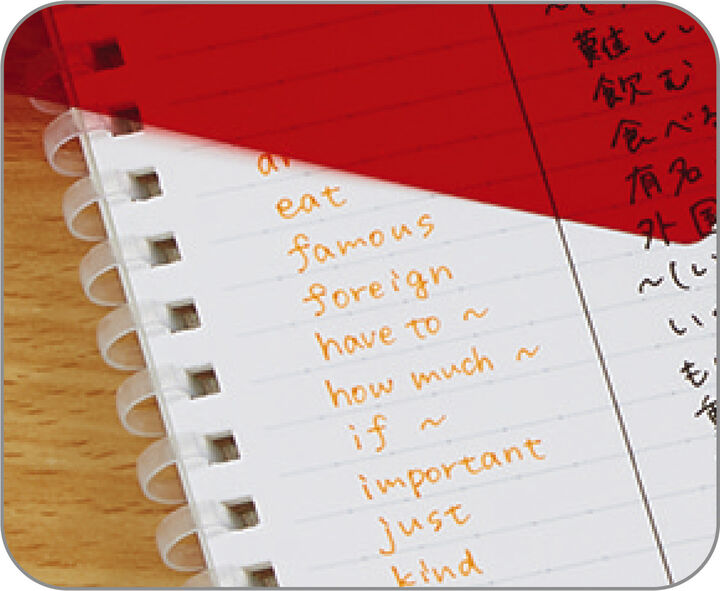 eat
famous
foreign
have to ~
how much ~
if ~
important
just
kind
難しい
飲む
食べ
有名
外国
~(し
い
も